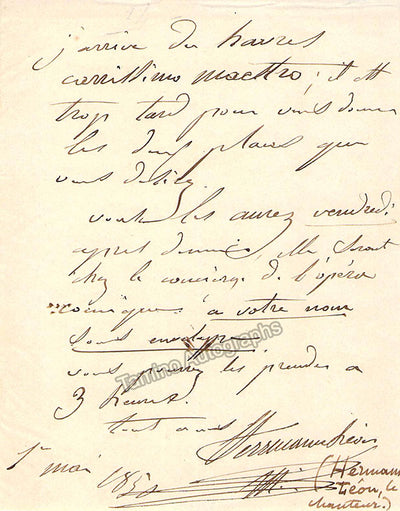 j'arrive du havres
carrissimo maestro ; il est
trop tard pour vous donner
les deux places que
vous désirez.
vous les aurez vendredi
apres demain, elle seront
chez le concierge de l'opéra
comique à votre nom
sous envelope
Tamino Autographs
vous pourrez les prendre a
3 heures.
tout a vous
Herrmann Léon
1er mai 185
(Hermann
Léon, le
chanteur.)